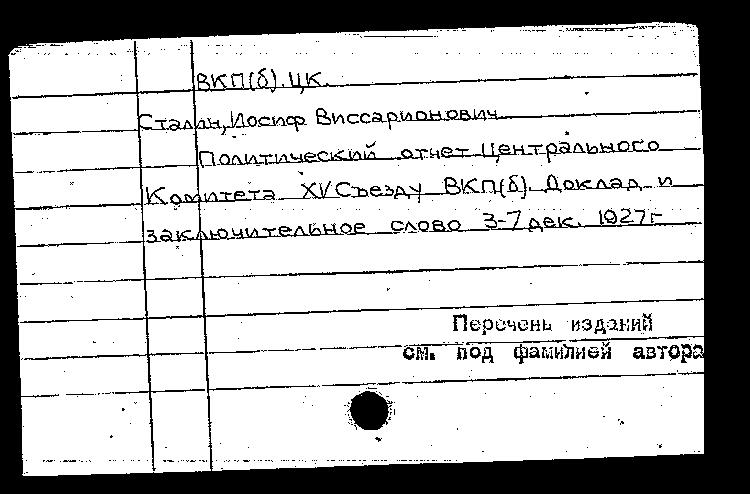 ВКП(б). ЦК.
Сталин, Иосиф Виссарионович
Политический отчет Центрального
Комитета XV Съезду ВКП(б). Доклад и
заключительное слово 3-7 дек. 1927г
Перечень изданий
см. под фамилией автора